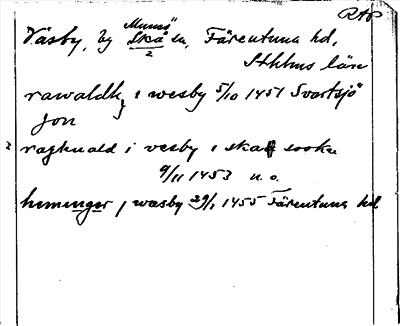 RAP
Munsö
Väsby, by Skå sn, Färentuna hd,
2
Sthlms län
rawaldh i wesby 5/10 1451 Svartsjö
Jon
2 raghuald i vesby i skaa sokn
9/11 1453 u.o.
heminger j wæsby 29/1 1455 Färentuna hd